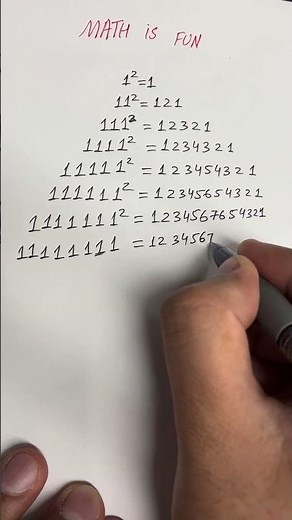 MATH is FUN
1²=1
11²=121
111²=12321
1111²=1234321
11111²=123454321
111111²=12345654321
1111111²=1234567654321
11111111=1234567